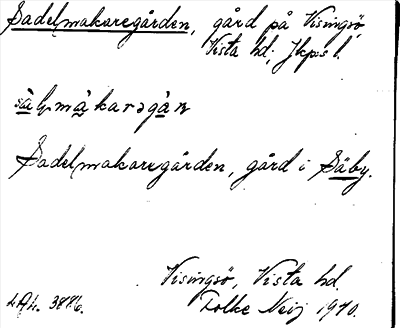 Sadelmakaregården, gård på Visingsö,
Vista hd, Jkps l.
Sadelmakaregården, gård i Säby.
Visingsö, Vista hd.
Folke Neij 1940.